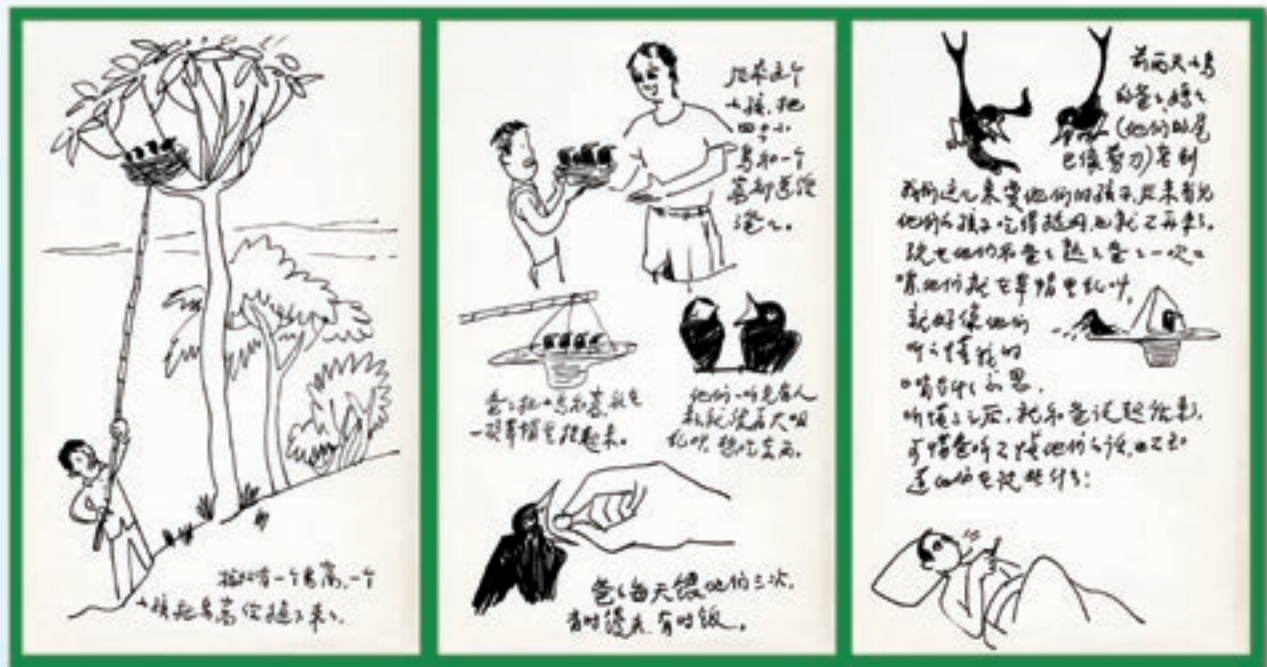 树上有一个鸟窝,一个
小孩把鸟窝给捅下来了。
后来这个
小孩,把
四只小
鸟和一个
窝都送给
爸爸。
爸爸把小鸟和窝,放在
一顶草帽里挂起来。
他们一听见有人
来就张着大咀
乱叫,想吃东西。
爸爸每天馒他们三次,
有时馒头,有时饭。
前两天小鸟
的爸爸、妈妈
(他们的尾
巴像剪刀)老到
我们这儿来看他们的孩子,后来看见
他们的孩子吃得挺好,也就不再来了。
现在他们和爸爸熟了,爸爸一吹口
哨他们就在草帽里乱叫,
就好像他们
听懂我的
口哨有什么意思,
听懂了之后,就和爸说起话来,
可惜爸听不懂他们的话,也不知
道他们在说些什么!